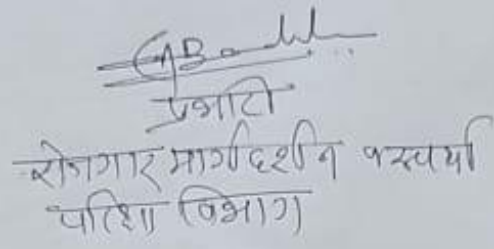 प्रभारी
रोजगार मार्गदर्शन व स्पर्धा
परिक्षा विभाग